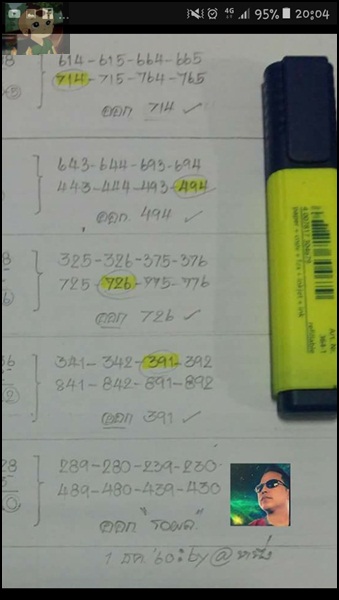 4G 95% 20:04
614-615-664-665
714-715-764-765
ออก 714 ✓
643-644-693-694
443-444-493-494
ออก 494 ✓
325-326-375-376
725-726-775-776
ออก 726 ✓
341-342-391-392
841-842-891-892
ออก 391 ✓
289-280-239-230
489-480-439-430
ออก "รอผล"
1 ธค.'60 : by @
4 007817 304679
paper + copy + fax + inkjet + ink
refillable
Art. Nr.
364-1